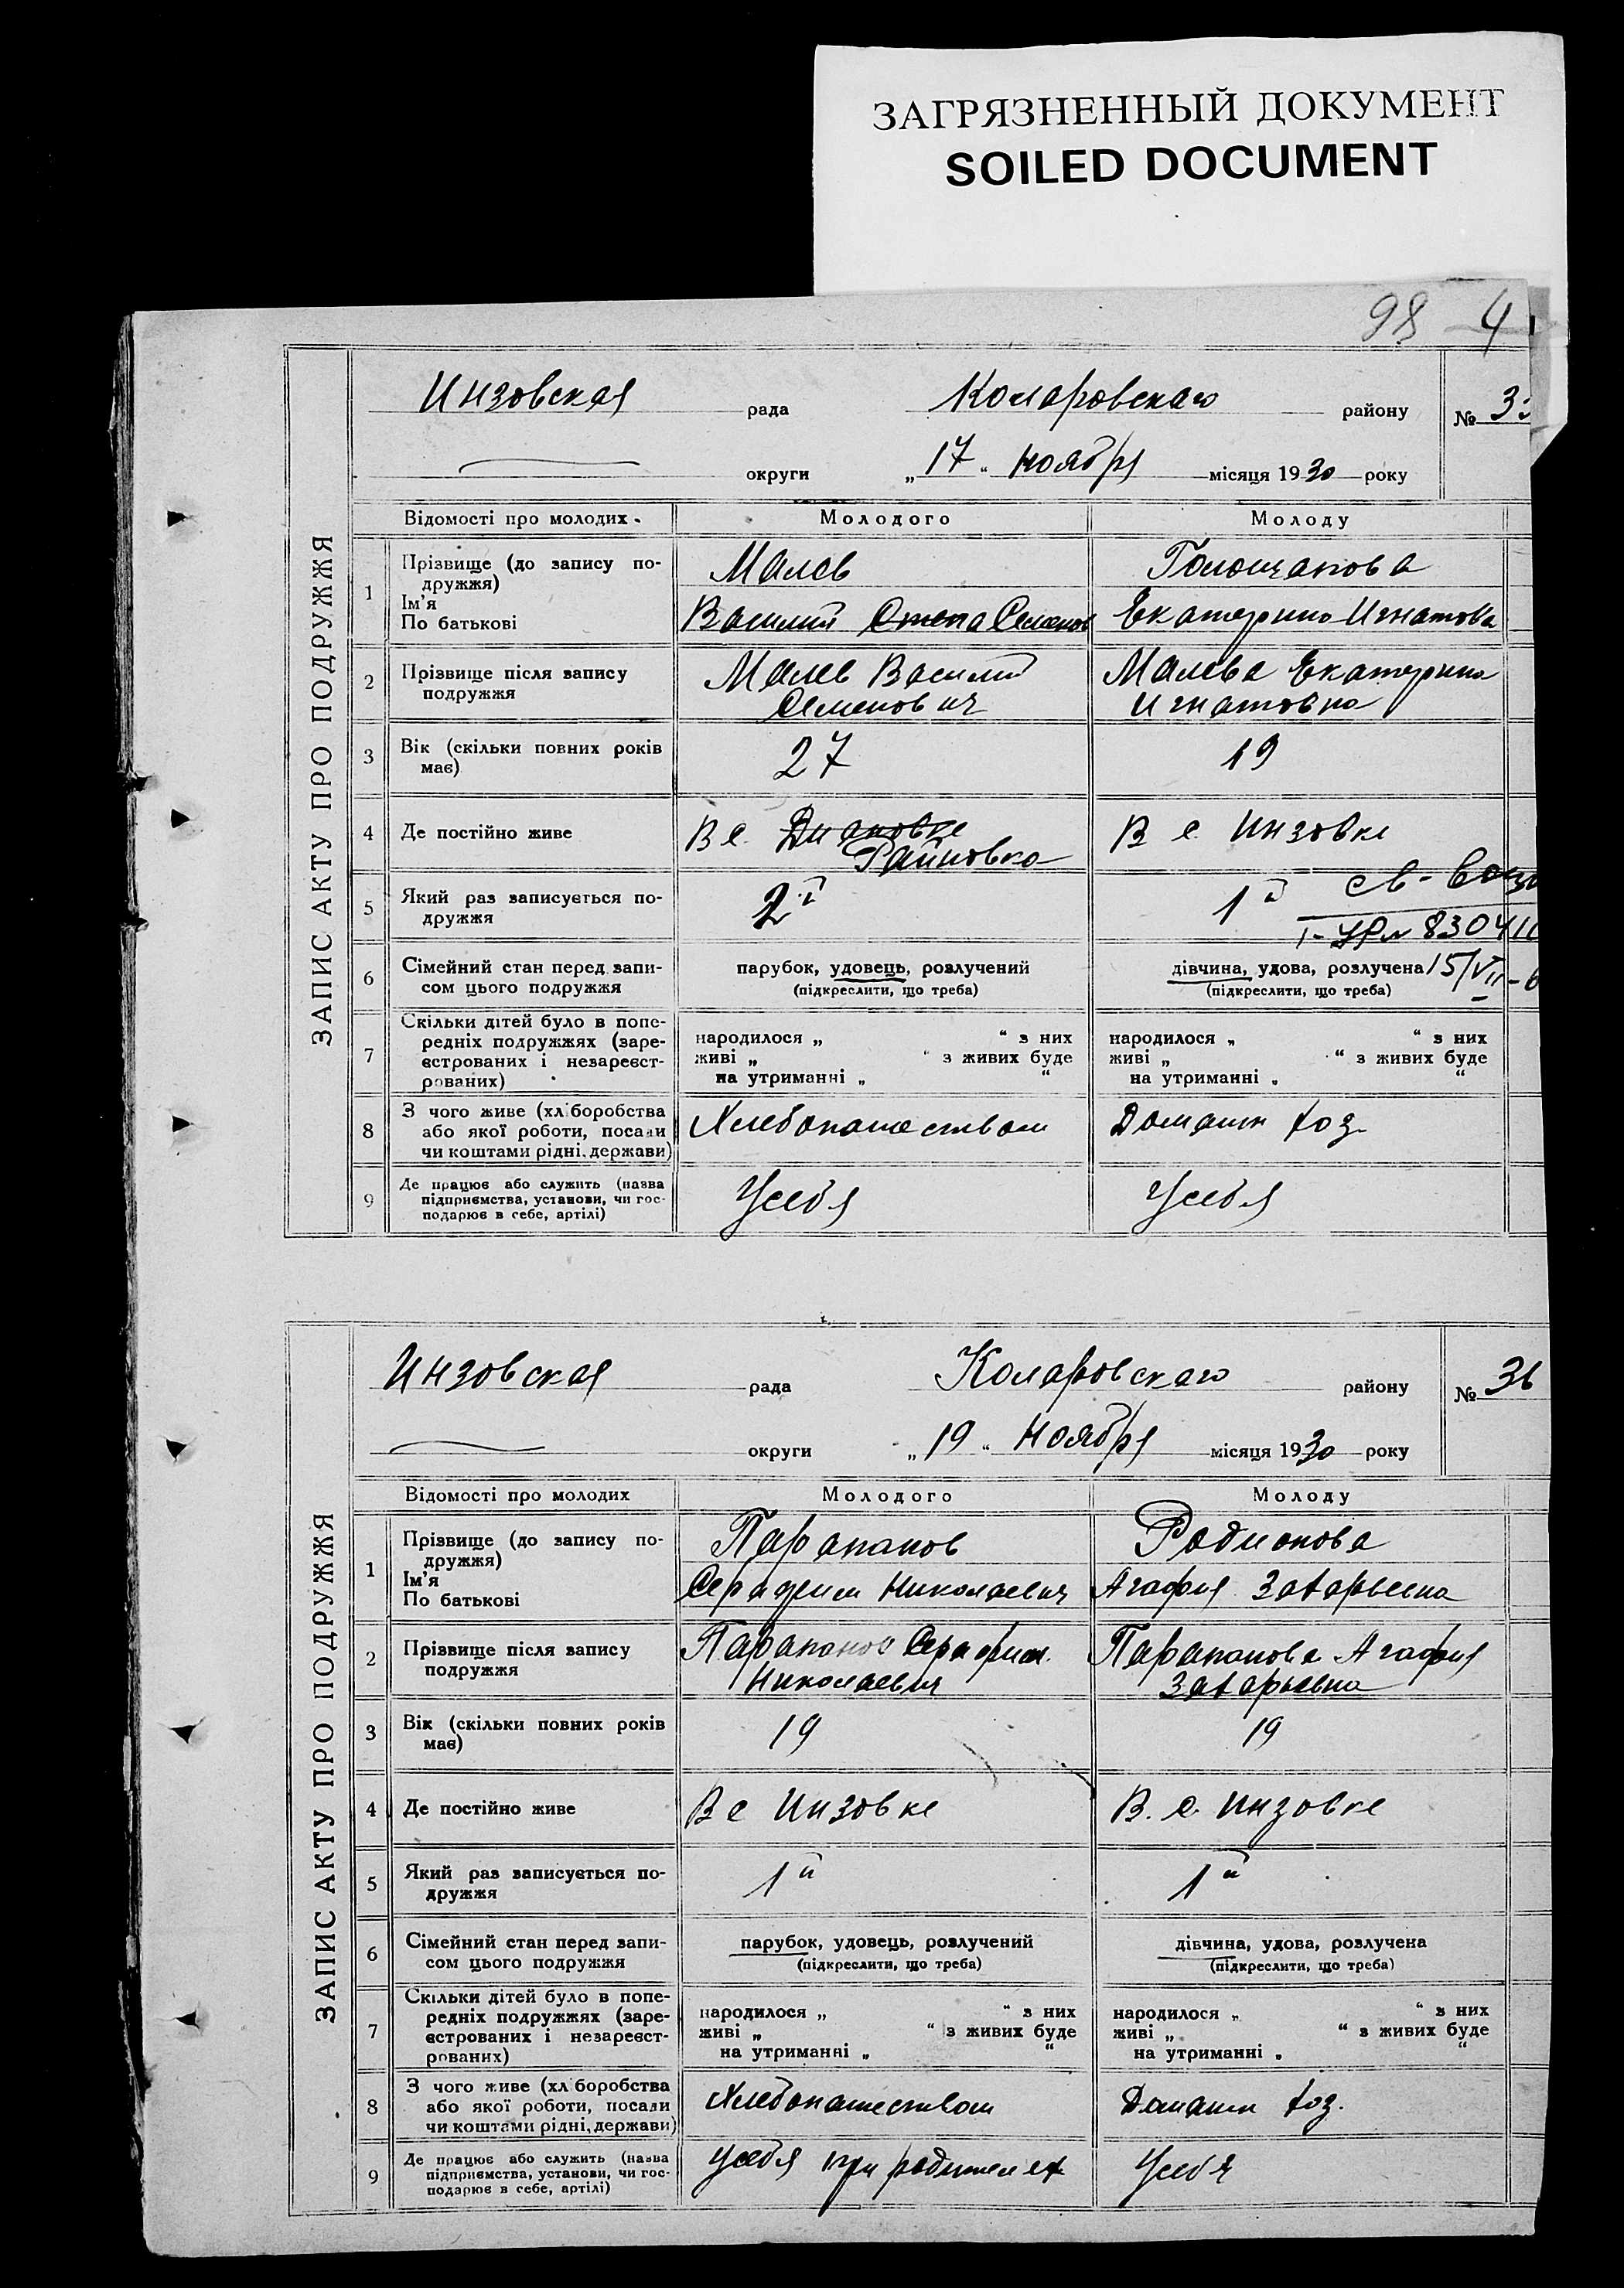 ЗАГРЯЗНЕННЫЙ ДОКУМЕНТ
SOILED DOCUMENT
98 4
ЗАПИС АКТУ ПРО ПОДРУЖЖЯ
Инзовская рада Коларовскаго району №
округи „17“ ноября місяця 1930 року
Відомості про молодих Молодого Молоду
1 Прізвище (до запису по-
дружжя)
Ім'я
По батькові
Малев Голощапова
Василий Степа Семенов Екатерина Игнатова
2 Прізвище після запису
подружжя
Малев Василий Малева Екатерина
Семенович Игнатовна
3 Вік (скільки повних років
має)
27 19
4 Де постійно живе В с. В с. Инзовке
Райновка
5 Який раз записується по-
дружжя
2й 1й св-во
I-УР № 830410
6 Сімейний стан перед запи-
сом цього подружжя
парубок, удовець, розлучений дівчина, удова, розлучена 15/VII-
(підкреслити, що треба) (підкреслити, що треба)
7 Скільки дітей було в попе-
редніх подружжях (заре-
єстрованих і незареєст-
рованих)
народилося „ “ з них народилося „ “ з них
живі „ “ з живих буде живі „ “ з живих буде
на утриманні „ “ на утриманні „ “
8 З чого живе (хліборобства
або якої роботи, посади
чи коштами рідні, держави)
Хлебопашеством Домашн хоз.
9 Де працює або служить (назва
підприємства, установи, чи гос-
подарює в себе, артілі)
Усебя Усебя
ЗАПИС АКТУ ПРО ПОДРУЖЖЯ
Инзовская рада Коларовскаго району № 36
округи „19“ ноября місяця 1930 року
Відомості про молодих Молодого Молоду
1 Прізвище (до запису по-
дружжя)
Ім'я
По батькові
Парапанов Родионова
Серафим Николаевич Агафия Захарьевна
2 Прізвище після запису
подружжя
Парапанов Серафим. Парапанова Агафия
Николаевич Захарьевна
3 Вік (скільки повних років
має)
19 19
4 Де постійно живе В с Инзовке В. с. Инзовке
5 Який раз записується по-
дружжя
1й 1й
6 Сімейний стан перед запи-
сом цього подружжя
парубок, удовець, розлучений дівчина, удова, розлучена
(підкреслити, що треба) (підкреслити, що треба)
7 Скільки дітей було в попе-
редніх подружжях (заре-
єстрованих і незареєст-
рованих)
народилося „ “ з них народилося „ “ з них
живі „ “ з живих буде живі „ “ з живих буде
на утриманні „ “ на утриманні „ “
8 З чого живе (хліборобства
або якої роботи, посади
чи коштами рідні, держави)
Хлебопашеством Домашн хоз.
9 Де працює або служить (назва
підприємства, установи, чи гос-
подарює в себе, артілі)
усебя при родителях Усебя